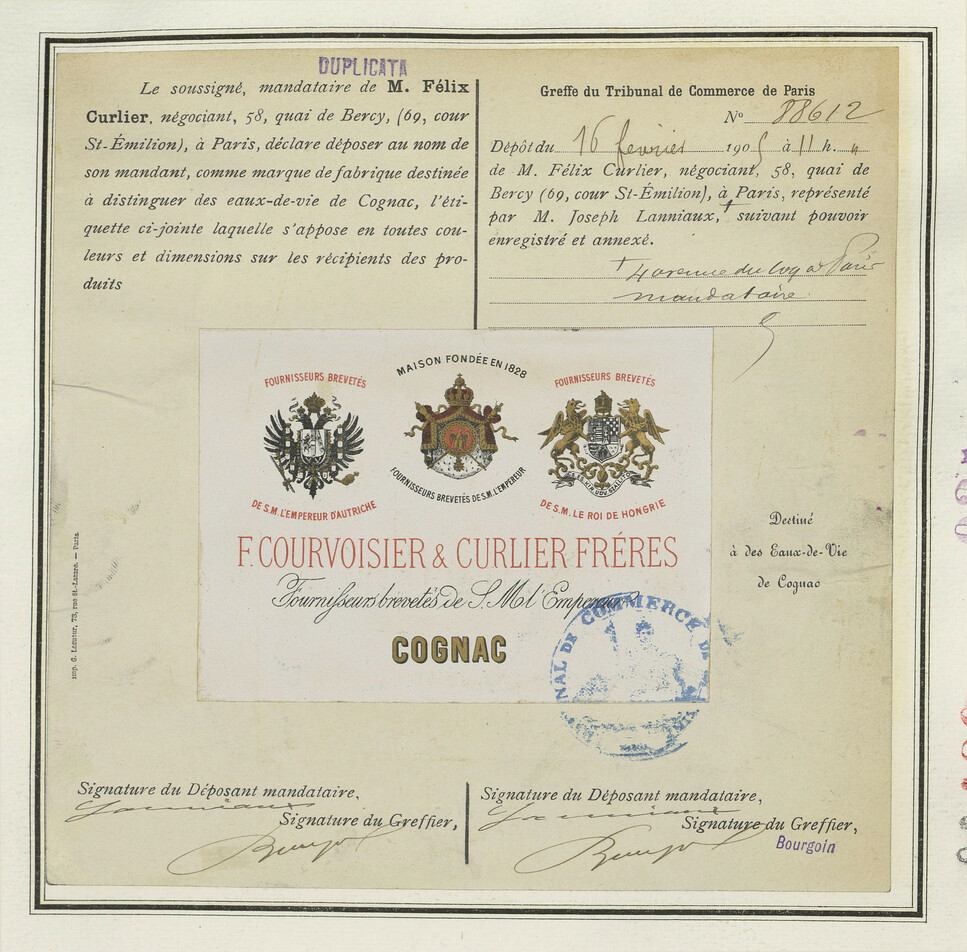 DUPLICATA
Le soussigné, mandataire de M. Félix
Curlier, négociant, 58, quai de Bercy, (69, cour
St-Émilion), à Paris, déclare déposer au nom de
son mandant, comme marque de fabrique destinée
à distinguer des eaux-de-vie de Cognac, l'éti-
quette ci-jointe laquelle s'appose en toutes cou-
leurs et dimensions sur les récipients des pro-
duits
Greffe du Tribunal de Commerce de Paris
No 88612
Dépôt du 16 février 1905 à 11 h. "
de M. Félix Curlier, négociant, 58, quai de
Bercy (69, cour St-Émilion), à Paris, représenté
par M. Joseph Lanniaux, + suivant pouvoir
enregistré et annexé.
+ 4 avenue du Coq à Paris
mandataire
MAISON FONDÉE EN 1828
FOURNISSEURS BREVETÉS
DE S.M. L'EMPEREUR D'AUTRICHE
FOURNISSEURS BREVETÉS DE S.M. L'EMPEREUR
FOURNISSEURS BREVETÉS
DE S.M. LE ROI DE HONGRIE
F. COURVOISIER & CURLIER FRÉRES
Fournisseurs brevetés de S. M. l'Empereur
COGNAC
Destiné
à des Eaux-de-Vie
de Cognac
NAL DE COMMERCE DE
Imp. G. Lecuteur, 73, rue St-Lazare. — Paris.
Signature du Déposant mandataire,
Lanniaux
Signature du Greffier,
Signature du Déposant mandataire,
Lanniaux
Signature du Greffier,
Bourgoin